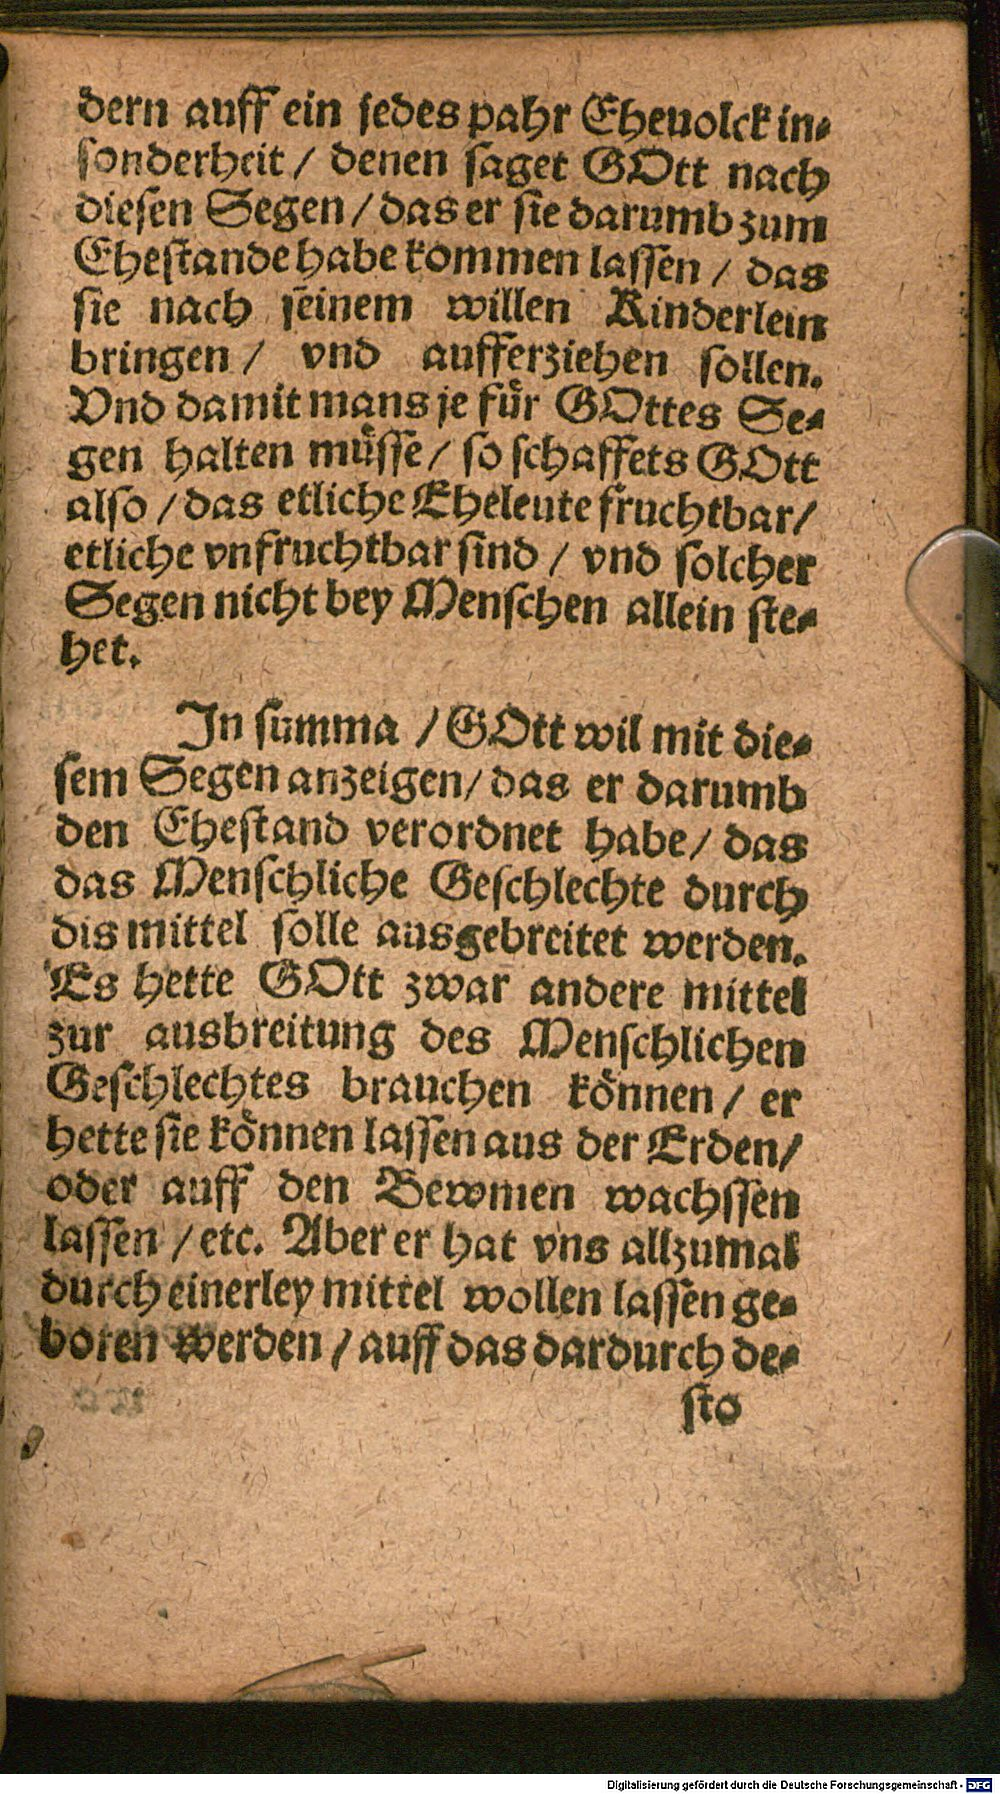 dern auff ein jedes pahr Eheuolck in⸗
sonderheit / denen saget GOtt nach
diesen Segen / das er sie darumb zum
Ehestande habe kommen lassen / das
sie nach seinem willen Kinderlein
bringen / vnd aufferziehen sollen.
Vnd damit mans je für GOttes Se⸗
gen halten müsse / so schaffets GOtt
also / das etliche Eheleute fruchtbar /
etliche vnfruchtbar sind / vnd solcher
Segen nicht bey Menschen allein ste⸗
het.
In summa / GOtt wil mit die⸗
sem Segen anzeigen / das er darumb
den Ehestand verordnet habe / das
das Menschliche Geschlechte durch
dis mittel solle ausgebreitet werden.
Es hette GOtt zwar andere mittel
zur ausbreitung des Menschlichen
Geschlechtes brauchen können / er
hette sie können lassen aus der Erden /
oder auff den Bewmen wachssen
lassen / etc. Aber er hat vns allzumal
durch einerley mittel wollen lassen ge⸗
boren werden / auff das dardurch de⸗
sto
Digitalisierung gefördert durch die Deutsche Forschungsgemeinschaft - DFG